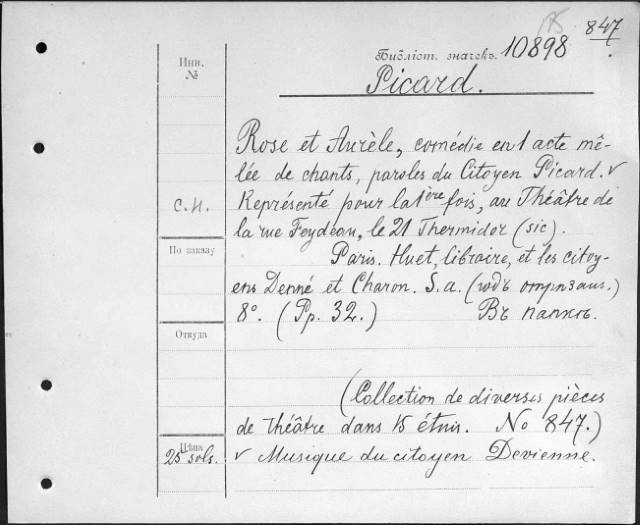 847
Инв.
№
Библіот. значекъ. 10898
Picard.
Rose et Aurèle, comédie en 1 acte mê-
lée de chants, paroles du Citoyen Picard. v
С.И. Représenté pour la 1ère fois, au Théâtre de
la rue Feydeau, le 21 Thermidor (sic).
По заказу
Paris. Huet, libraire, et les citoy-
ens Denné et Charon. S. a. (годъ отрѣзан.)
8°. (Pp. 32.) Въ папкѣ.
Откуда
(Collection de diverses pièces
de théâtre dans 15 étuis. No 847.)
Цѣна
25 sols. v Musique du citoyen Devienne.